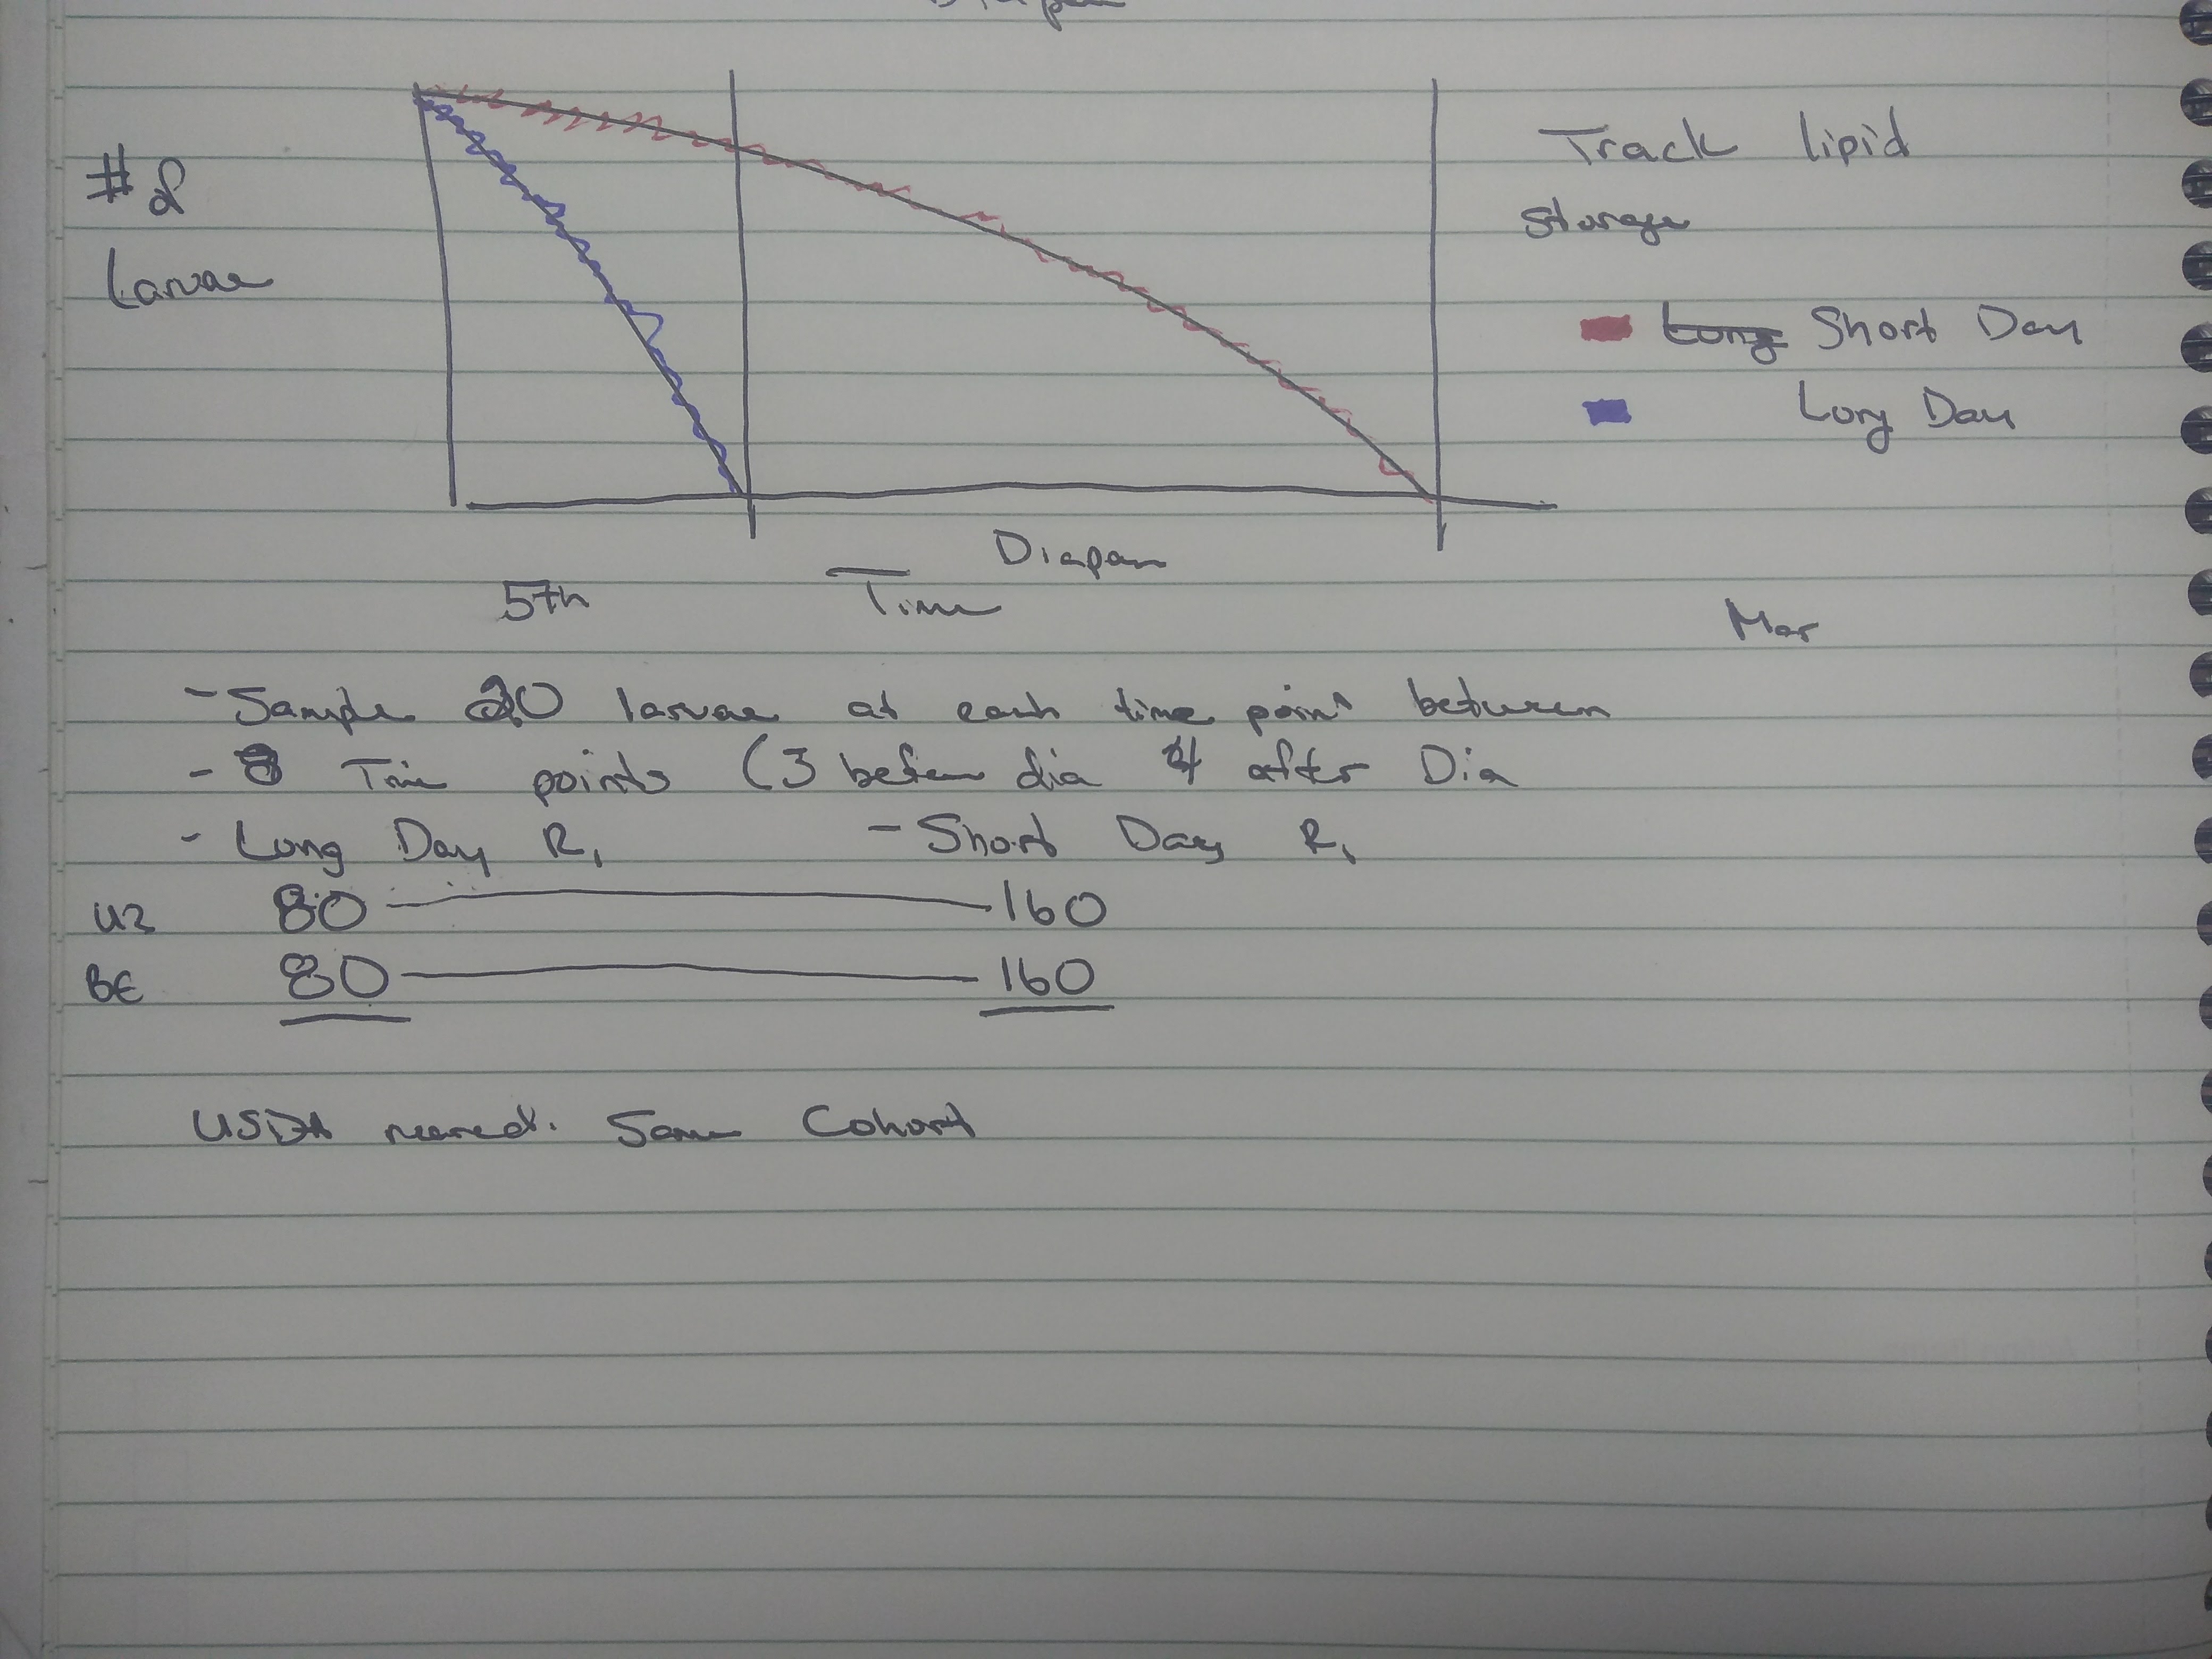 # of
Larvae
Track lipid
Storage
Long Short Day
Long Day
Diapau
5th
Time
Mar
- Sample 20 larvae at each time point between
- 8 Time points (3 before dia 4 after Dia
- Long Day R1 - Short Day R1
UZ 80 160
BE 80 160
USDA reared. Same Cohort